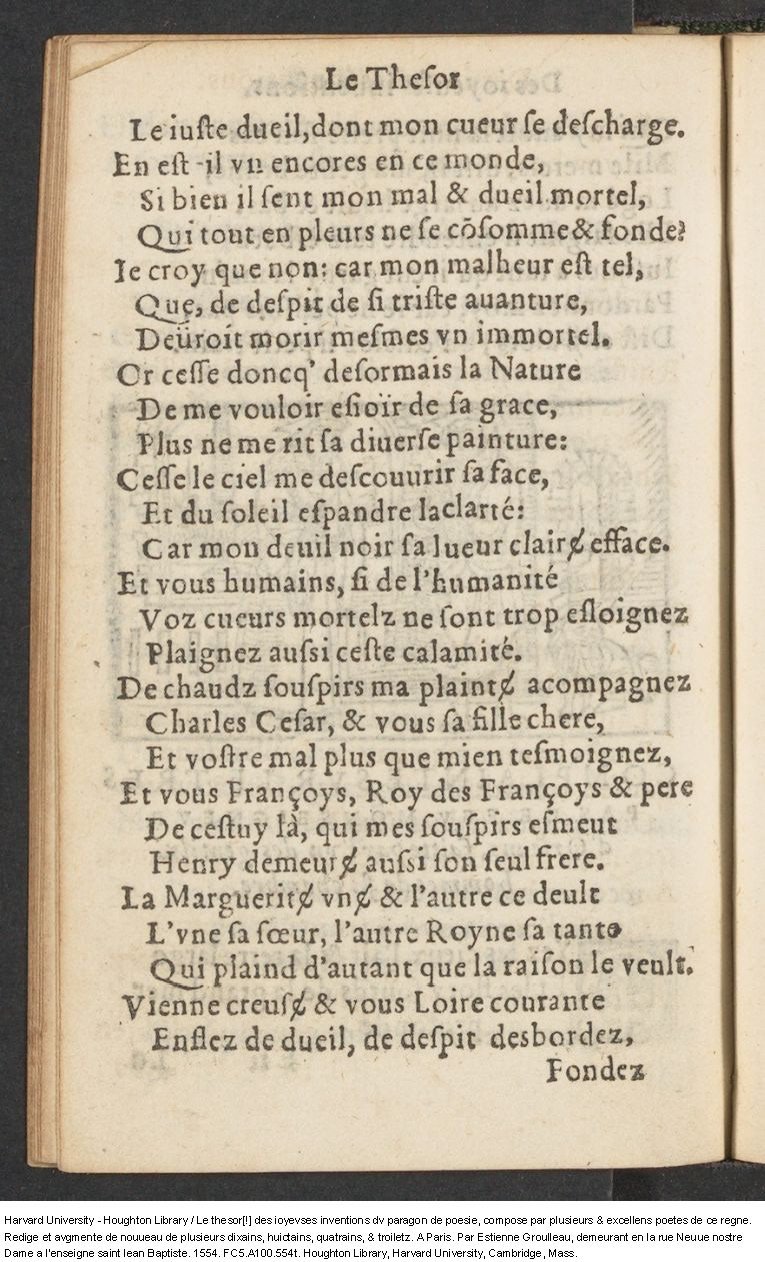 Le Theſor
Le iuſte dueil, dont mon cueur ſe deſcharge.
En eſt-il vn encores en ce monde,
Si bien il ſent mon mal & dueil mortel,
Qui tout en pleurs ne ſe cõſomme & fonde?
Ie croy que non: car mon malheur eſt tel,
Que, de deſpit de ſi triſte auanture,
Deüroit morir meſmes vn immortel.
Or ceſſe doncq' deſormais la Nature
De me vouloir eſioïr de ſa grace,
Plus ne me rit ſa diuerſe painture:
Ceſſe le ciel me deſcouurir ſa face,
Et du ſoleil eſpandre laclarté:
Car mon deuil noir ſa lueur clairɇ efface.
Et vous humains, ſi de l'humanité
Voz cueurs mortelz ne ſont trop eſloignez
Plaignez auſsi ceſte calamité.
De chaudz ſouſpirs ma plaintɇ acompagnez
Charles Ceſar, & vous ſa fille chere,
Et voſtre mal plus que mien teſmoignez,
Et vous Françoys, Roy des Françoys & pere
De ceſtuy là, qui mes ſouſpirs eſmeut
Henry demeurɇ auſsi ſon ſeul frere.
La Margueritɇ vnɇ & l'autre ce deult
L'vne ſa ſœur, l'autre Royne ſa tante
Qui plaind d'autant que la raiſon le veult.
Vienne creuſɇ & vous Loire courante
Enflez de dueil, de deſpit desbordez,
Fondez
Harvard University - Houghton Library / Le thesor[!] des ioyevses inventions dv paragon de poesie, compose par plusieurs & excellens poetes de ce regne.
Redige et avgmente de nouueau de plusieurs dixains, huictains, quatrains, & troiletz. A Paris. Par Estienne Groulleau, demeurant en la rue Neuue nostre
Dame a l'enseigne saint Iean Baptiste. 1554. FC5.A100.554t. Houghton Library, Harvard University, Cambridge, Mass.